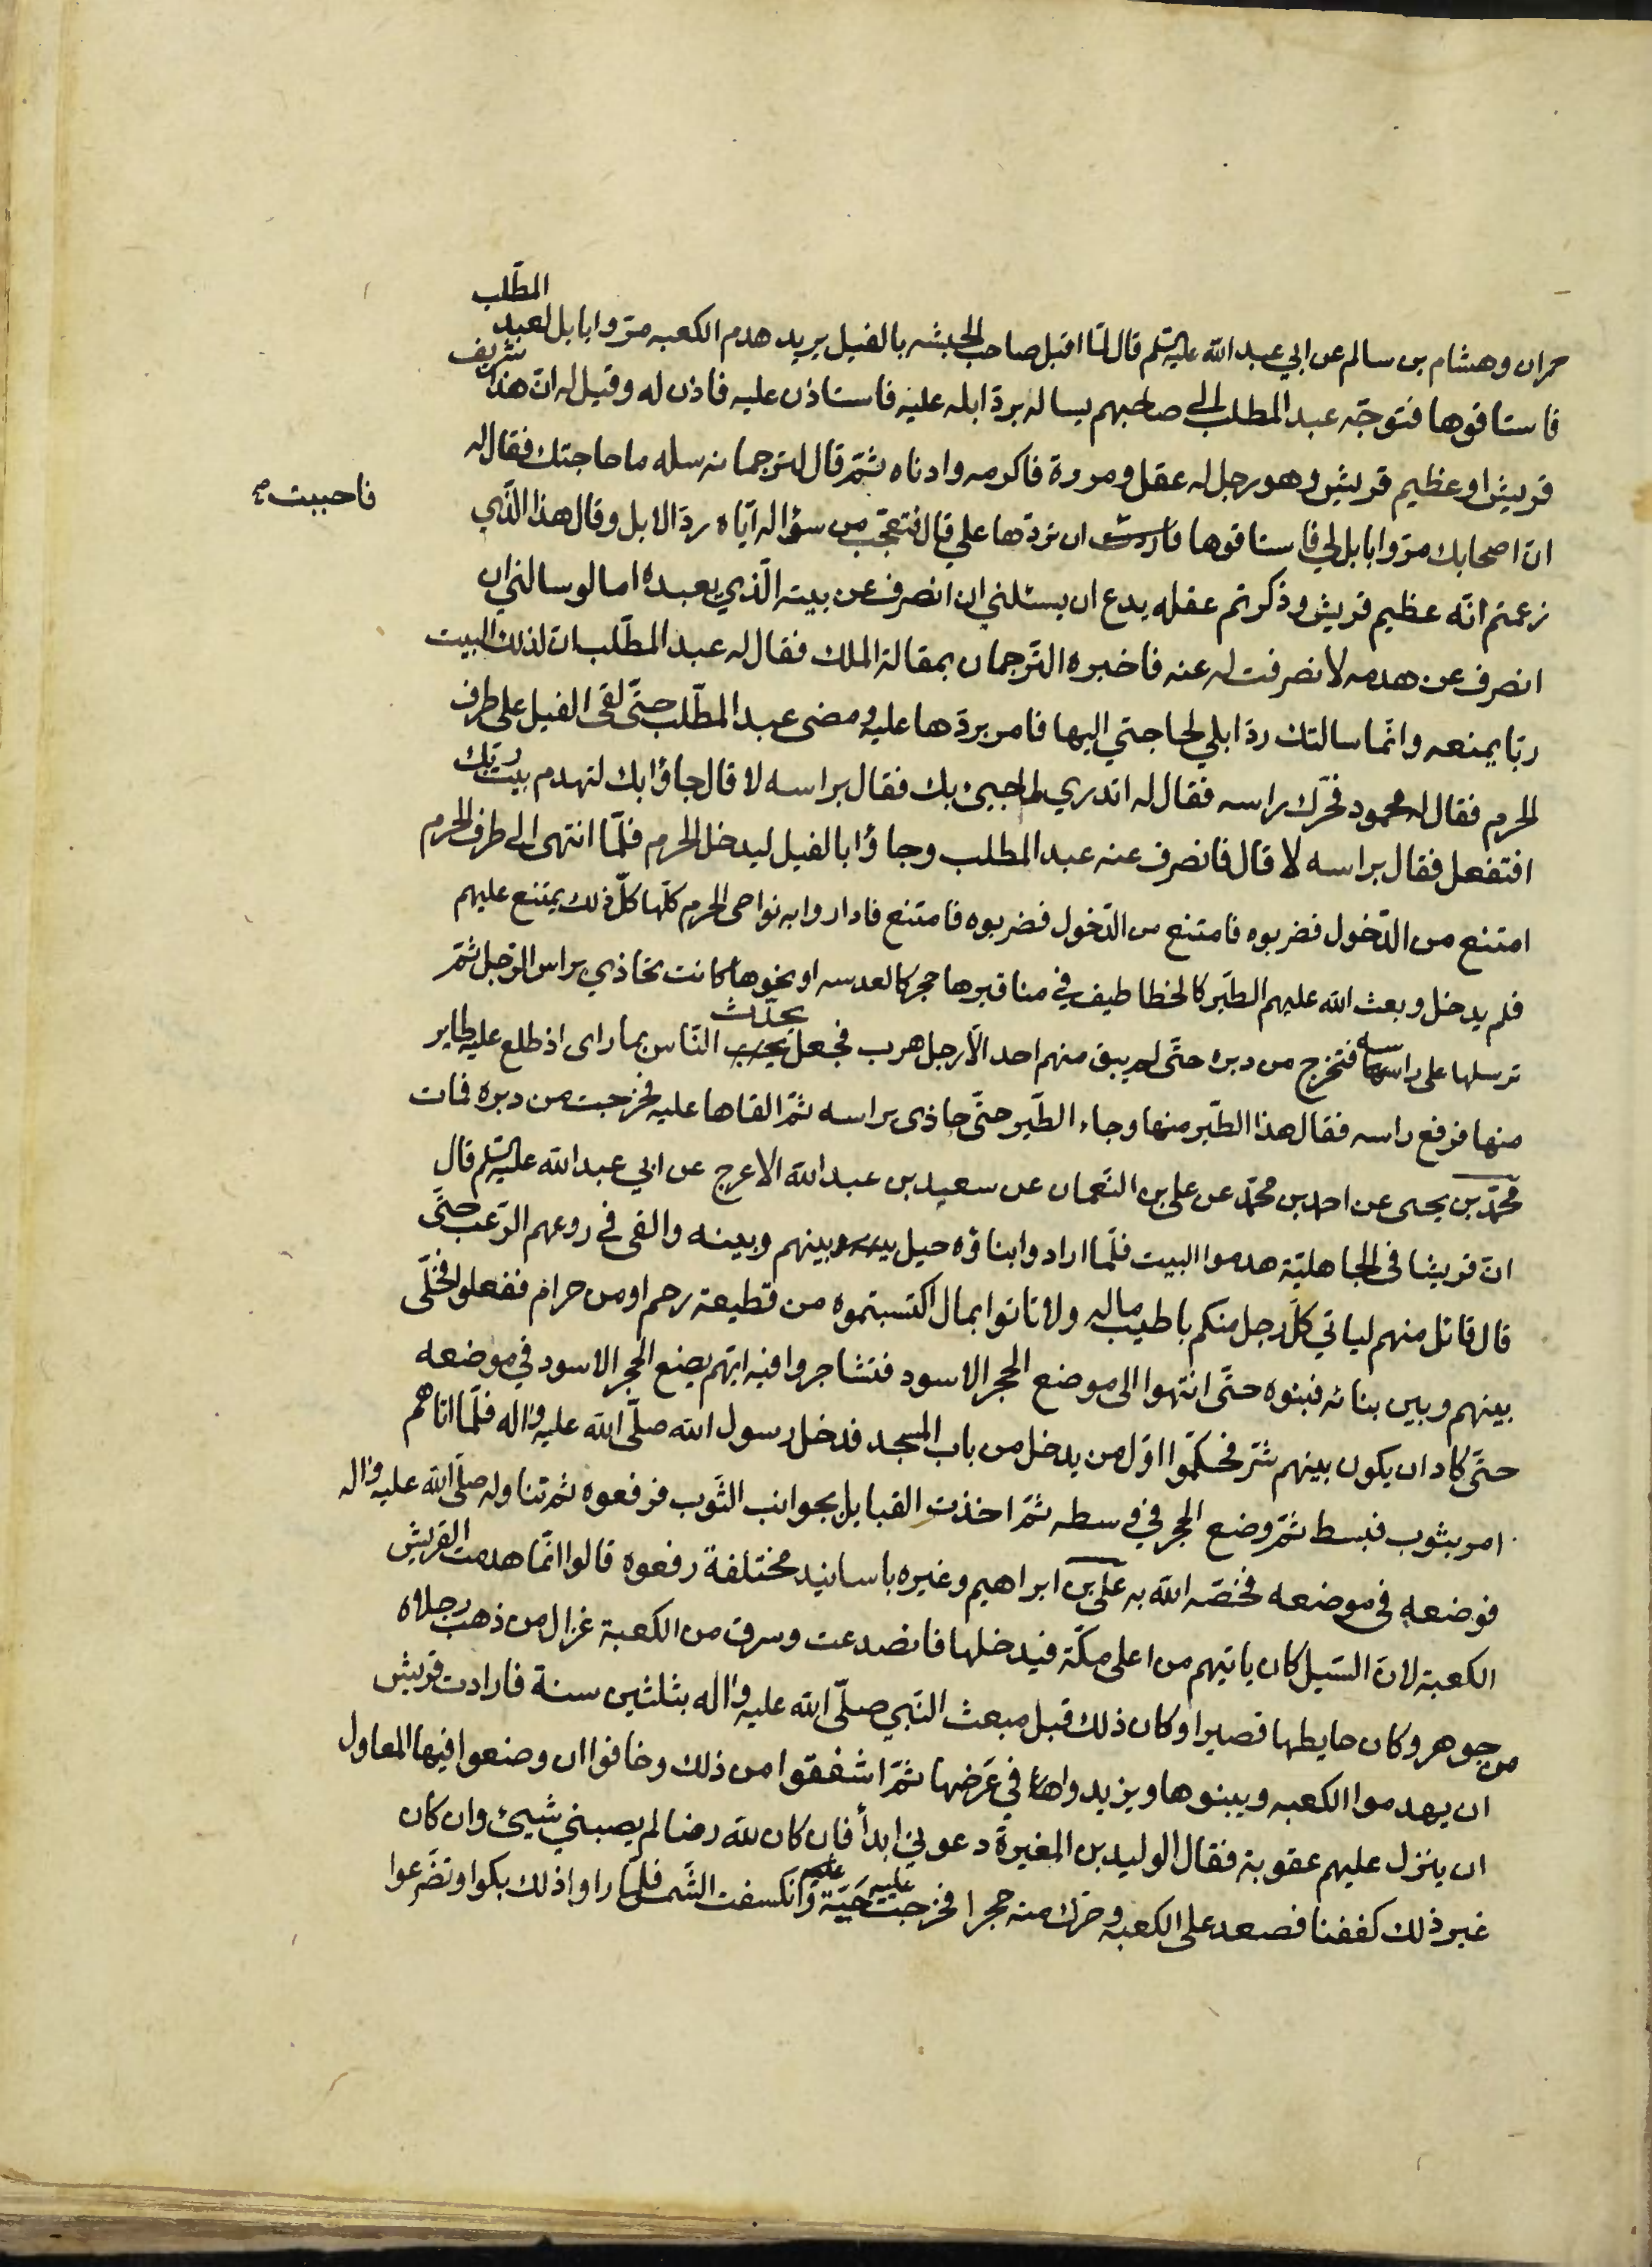 حمران وهشام بن سالم عن ابي عبد الله عليه السلم قال لمّا اقبل صاحب الحبشه بالفيل يريد هدم الكعبه مرّوا بابل لعبد المطّلب
فاستاقوها فتوجّه عبد المطلب الى صاحبهم يساله بردّ ابله عليه فاستاذن عليه فاذن له وقيل له انّ هذا شريف
قريش او عظيم قريش وهو رجل له عقل ومروة فاكرمه وادناه ثمّ قال لترجمانه سله ما حاجتك فقال له
انّ اصحابك مرّوا بابل لي فاستاقوها فاردت ان تردّها علي قال فتعجّب من سؤاله ايّاه ردّ الابل وقال هذا الّذي
فاحببت
زعمتم انّه عظيم قريش وذكرتم عقله يدع ان يسئلني ان انصرف عن بيته الّذي يعبده اما لو سالني ان
انصرف عن هدمه لانصرفت له عنه فاخبره التّرجمان بمقالة الملك فقال له عبد المطّلب انّ لذلك البيت
ربّا يمنعه وانّما سالتك ردّ ابلي لحاجتي اليها فامر بردّها عليه ومضى عبد المطّلب حتّى لقى الفيل على طرف
الحرم فقال له محمود فحرّك راسه فقال له اتدري لما جيئ بك فقال براسه لا قال جاؤا بك لتهدم بيت ربّك
افتفعل فقال براسه لا قال فانصرف عنه عبد المطلب وجاؤا بالفيل ليدخل الحرم فلمّا انتهى الى طرف الحرم
امتنع من الدّخول فضربوه فامتنع من الدّخول فضربوه فامتنع فاداروا به نواحى الحرم كلّها كلّ ذلك يمتنع عليهم
فلم يدخل وبعث الله عليهم الطّير كالخطاطيف في مناقيرها حجر كالعدسه او نحوها كانت تحاذي براس الرّجل ثمّ
ترسلها على راسه فتخرج من دبره حتّى لم يبق منهم احد الّا رجل هرب فجعل يحدّث النّاس بما راى اذ طلع عليه طاير
منها فرفع راسه فقال هذا الطّير منها وجاء الطّير حتّى حاذى براسه ثمّ القاها عليه فخرجت من دبره فمات
محمّد بن يحيى عن احمد بن محمّد عن على بن النّعمان عن سعيد بن عبد الله الاعرج عن ابي عبد الله عليه السلم قال
انّ قريشا في الجاهليّة هدموا البيت فلمّا ارادوا بناؤه حيل بينهم وبينه والقى في روعهم الرّعب حتّى
قال قائل منهم لياتي كلّ رجل منكم باطيب ماله ولا تاتوا بمال اكتسبتموه من قطيعة رحم او من حرام ففعلوا فخلّى
بينهم وبين بنائه فبنوه حتّى انتهوا الى موضع الحجر الاسود فتشاجروا فيه ايّهم يضع الحجر الاسود في موضعه
حتّى كاد ان يكون بينهم شرّ فحكّموا اوّل من يدخل من باب المسجد فدخل رسول الله صلّى الله عليه واله فلمّا اتاهم
امر بثوب فبسط ثمّ وضع الحجر في وسطه ثمّ اخذت القبايل بجوانب الثّوب فرفعوه ثم تناوله صلّى الله عليه واله
فوضعه في موضعه فخصّه الله به على بن ابراهيم وغيره باسانيد مختلفة رفعوه قالوا انّما هدمت القريش
الكعبة لانّ السّيل كان ياتيهم من اعلى مكّة فيدخلها فانصدعت وسرق من الكعبة غزال من ذهب رجلاه
من جوهر وكان حايطها قصيرا وكان ذلك قبل مبعث النّبي صلّى الله عليه واله بثلثين سنة فارادت قريش
ان يهدموا الكعبه ويبنوها ويزيدوا في عَرضها ثمّ اشفقوا من ذلك وخافوا ان وضعوا فيها المعاول
ان ينزل عليهم عقوبة فقال الوليد بن المغيرة دعوني ابدأ فان كان لله رضا لم يصبني شيئ وان كان
غير ذلك كففنا فصعد على الكعبه وحرّك منه حجرا فخرجت عليه حَيّة وانكسفت الشّمس فلمّا راوا ذلك بكوا وتضرّعوا